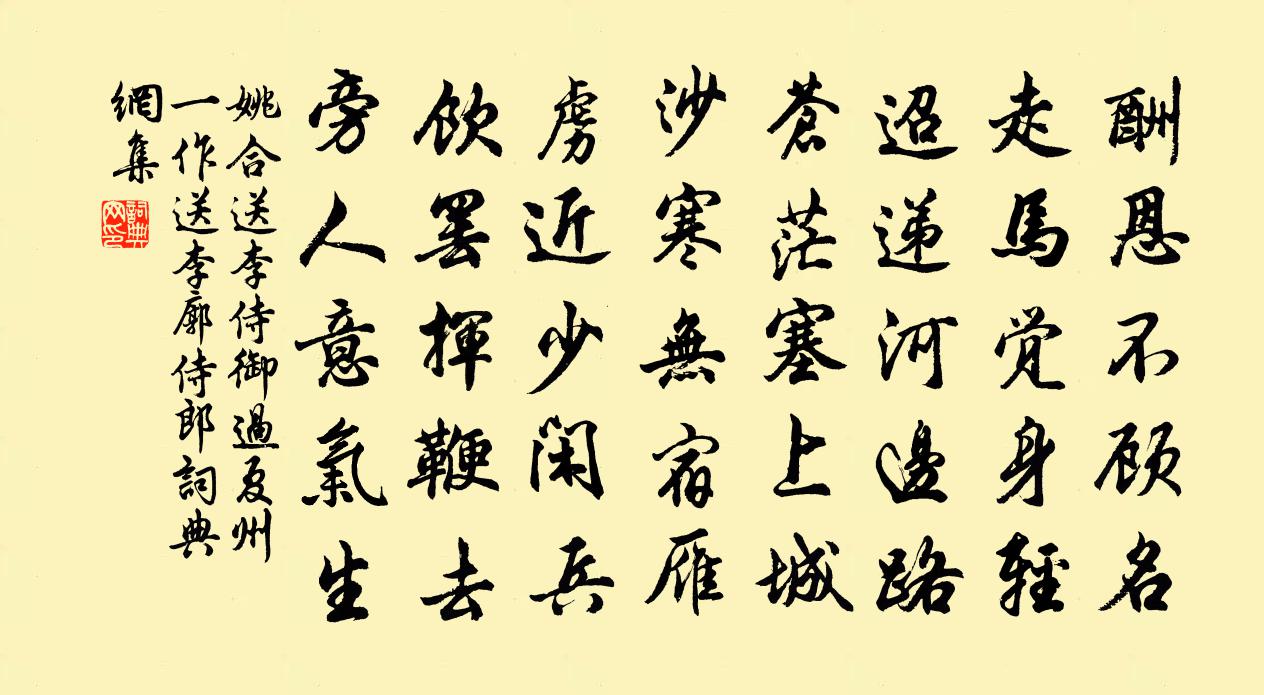 酬恩不顾名
走馬觉身輕
迢递河邊路
蒼茫塞上城
沙寒無宿雁
虏近少闲兵
饮罢揮鞭去
旁人意氣生
姚合送李侍御過夏州
一作送李廓侍郎詞典
網集
詞典網印